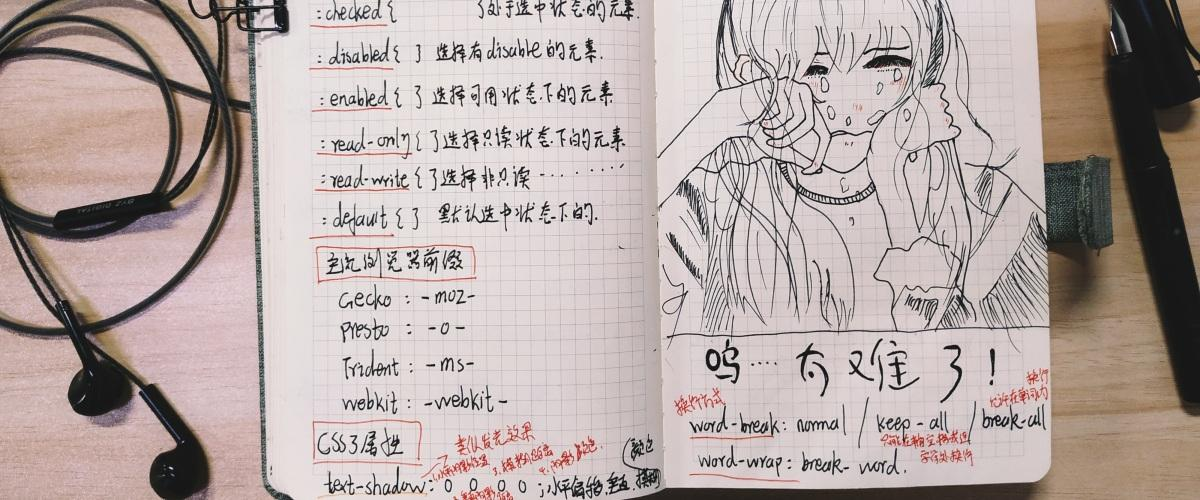 :checked { }处于选中状态的元素.
:disabled { } 选择有disable的元素.
:enabled { } 选择可用状态下的元素
:read-only { } 选择只读状态下的元素
:read-write { } 选择非只读 ........
:default { } 默认选中状态下的.
主流浏览器前缀
Gecko : -moz-
presto : -o-
Trident : -ms-
webkit : -webkit-
CSS3属性
类似发光效果
颜色
text-shadow: 0 0 0 0 ;水平偏移,垂直,模糊
呜····太难了!
换行方式
换行
允许在单词内
word-break: normal / keep-all / break-all
只能在半角空格或连
字符处换行
word-wrap: break-word.